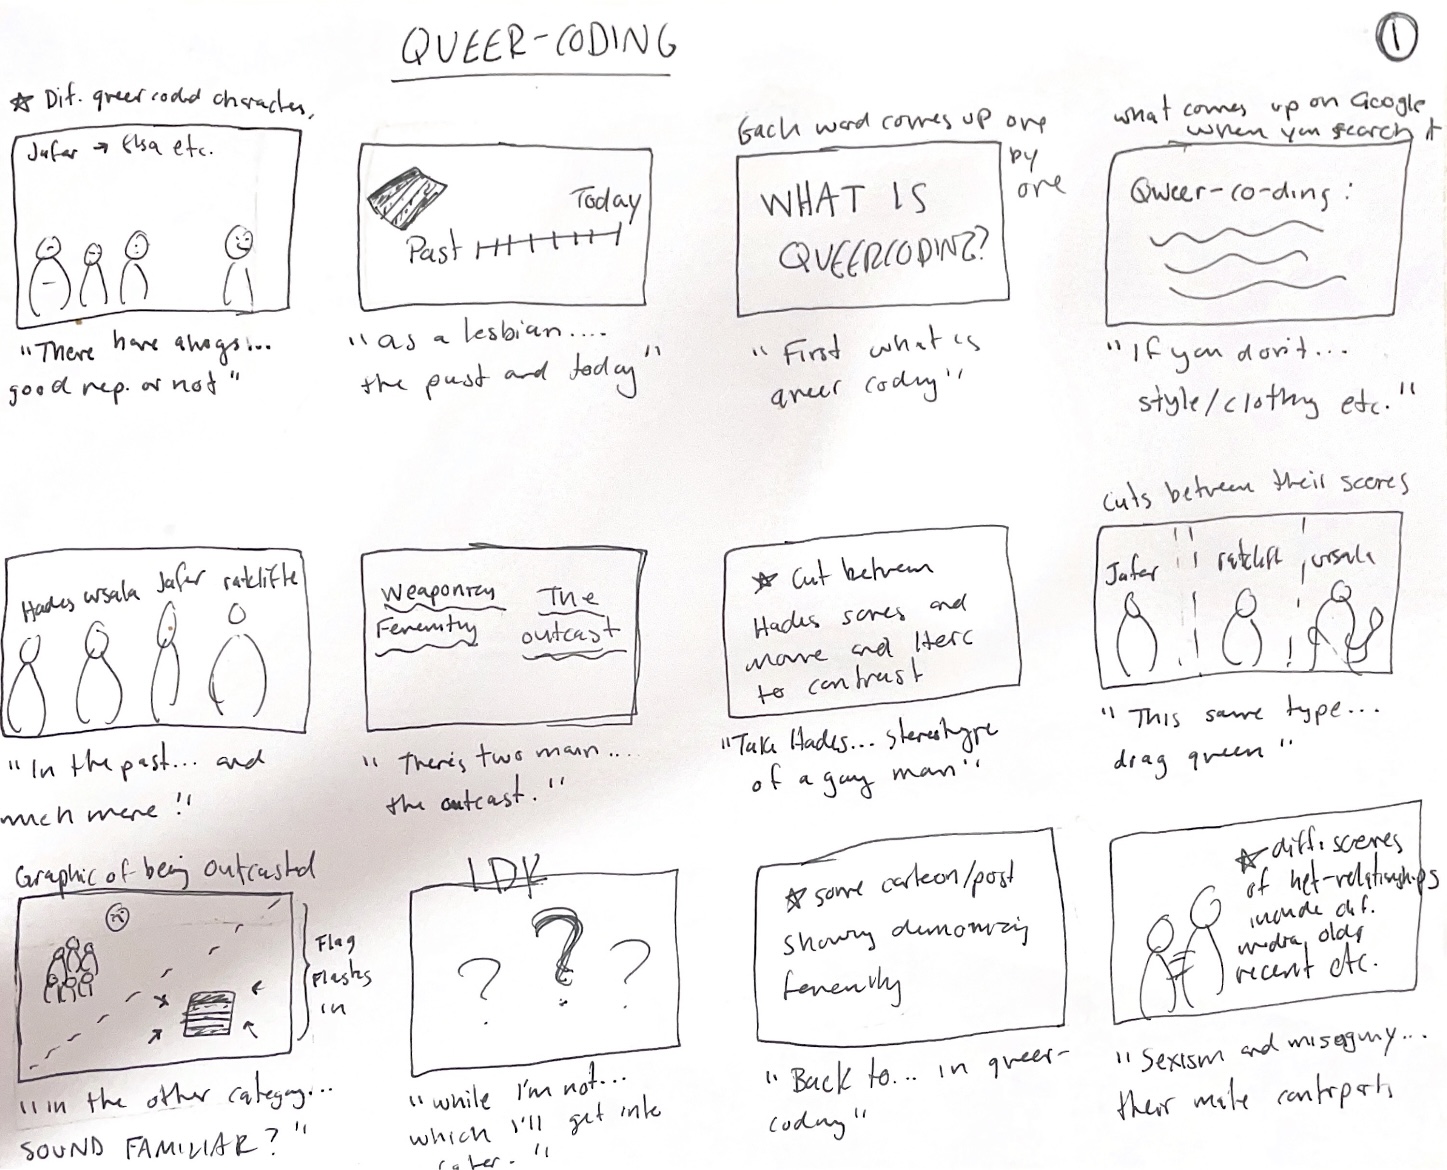 QUEER-CODING
1
★ Dif. queer coded characters,
Jafar → Elsa etc.
"There have always...
good rep. or not"
Past
Today
"as a lesbian....
the past and today"
Each word comes up one
by
one
WHAT IS
QUEERCODING?
"First what is
queer coding"
what comes up on Google
when you search it
Qweer-co-ding:
"If you don't...
style/clothing etc."
Hades ursala Jafar ratcliffe
"In the past... and
much more!"
Weaponizing
Femininity
The
outcast
"There's two main....
the outcast."
★ Cut between
Hades scenes and
movie and
to contrast
"Take Hades... stereotype
of a gay man"
Cuts between their scenes
Jafar
ratcliff
ursula
"This same type...
drag queen"
Graphic of being outcasted
Flag
flashes
in
"in the other category...
SOUND FAMILIAR?"
IDK
? ? ?
"while I'm not...
which I'll get into
later."
★ some cartoon/post
showing demonizing
femininity
"Back to... in queer-
coding"
★ diff. scenes
of het-relationships
include dif.
media, old,
recent etc.
"Sexism and misogyny...
their male contrparts